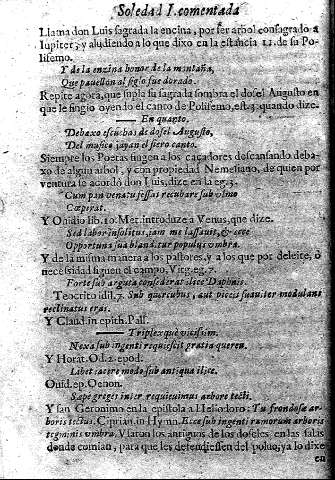 Soledad I. comentada
Llama don Luis sagrada la encina, por ser arbol consagrado a
Iupiter; y aludiendo a lo que dixo en la estancia 11. de su Po-
lifemo.
Y de la enzina honor de la montaña,
Que pauellon al siglo fue dorado.
Repite agora, que suplia su sagrada sombra el dosel Augusto en
que le fingio oyendo el canto de Polifemo, est. quando dize.
En quanto,
Debaxo escuchas de dosel Augusto,
Del musico jayan el fiero canto.
Siempre los Poetas fingen a los caçadores descansando deba-
xo de algun arbol, y con propiedad Nemesiano, de quien por
ventura se acordò don Luis, dize en la eg. 3.
Cum pan venatu fessus recubare sub vlmo
Cœperat.
Y Ouidio lib. 10. Met. introduze a Venus, que dize.
Sed labor insolitus, iam me lassauit, & ecce
Opportuna sua blanditur populus vmbra.
Y de la misma manera a los pastores, y a los que por deleite, ò
necessidad siguen el campo, Virg. eg. 7.
Forte sub arguta consederat ilice Daphnis.
Teocrito idil. 7. Sub quercubus, aut piceis suauiter modulans
reclinatus eras.
Y Claud. in epith. Pall.
Triplexque vicissim.
Nexa sub ingenti requiescit gratia quercu.
Y Horat. Od. 2. epod.
Libet iacere modo sub antiqua ilice.
Ouid. ep. Oenon.
Sæpe greges inter requieuimus arbore tecti.
Y san Geronimo en la epistola a Heliodoro: Tu frondosæ ar-
boris tectus. Ciprian. in Hymn. Ecce sub ingenti ramorum arboris
tegminis vmbra. Vsaron los antiguos de los doseles en las salas
donde comian, para que les defendiessen del poluo, ya lo dixe
en